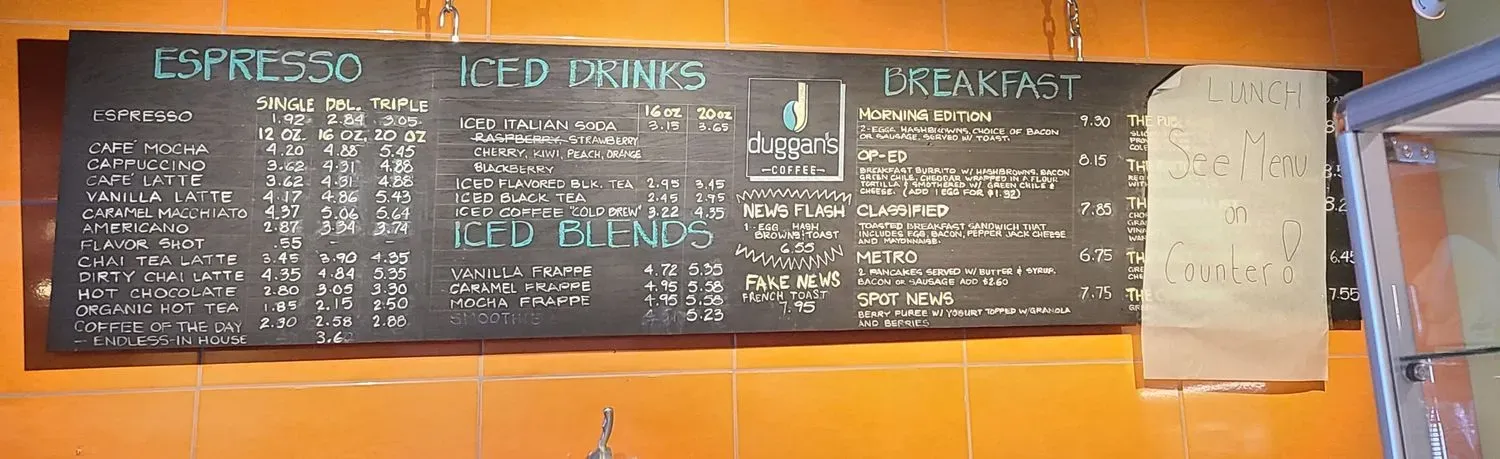 ESPRESSO
SINGLE DBL. TRIPLE
ESPRESSO 1.92 2.84 3.05
12 OZ. 16 OZ. 20 OZ
CAFÉ MOCHA 4.20 4.88 5.45
CAPPUCCINO 3.62 4.31 4.88
CAFÉ LATTE 3.62 4.31 4.88
VANILLA LATTE 4.17 4.86 5.43
CARAMEL MACCHIATO 4.37 5.06 5.64
AMERICANO 2.87 3.34 3.74
FLAVOR SHOT .55 - -
CHAI TEA LATTE 3.45 3.90 4.35
DIRTY CHAI LATTE 4.35 4.84 5.35
HOT CHOCOLATE 2.80 3.05 3.30
ORGANIC HOT TEA 1.85 2.15 2.50
COFFEE OF THE DAY 2.30 2.58 2.88
- ENDLESS-IN HOUSE
ICED DRINKS
16 OZ 20 OZ
ICED ITALIAN SODA 3.15 3.65
RASPBERRY, STRAWBERRY
CHERRY, KIWI, PEACH, ORANGE
BLACKBERRY
ICED FLAVORED BLK. TEA 2.95 3.45
ICED BLACK TEA 2.45 2.95
ICED COFFEE "COLD BREW" 3.22 4.35
ICED BLENDS
VANILLA FRAPPE 4.72 5.35
CARAMEL FRAPPE 4.95 5.58
MOCHA FRAPPE 4.95 5.58
SMOOTHIE 5.23
duggan's
-COFFEE-
NEWS FLASH
1-EGG, HASH
BROWNS, TOAST
6.55
FAKE NEWS
FRENCH TOAST
7.95
BREAKFAST
MORNING EDITION 9.30
2-EGGS, HASHBROWNS, CHOICE OF BACON
OR SAUSAGE. SERVED W/ TOAST.
OP-ED 8.15
BREAKFAST BURRITO W/ HASHBROWNS, BACON
GREEN CHILE, CHEDDAR WRAPPED IN A FLOUR
TORTILLA & SMOTHERED W/ GREEN CHILE &
CHEESE. (ADD 1 EGG FOR $1.92)
CLASSIFIED 7.85
TOASTED BREAKFAST SANDWICH THAT
INCLUDES EGG, BACON, PEPPER JACK CHEESE
AND MAYONNAISE.
METRO 6.75
2 PANCAKES SERVED W/ BUTTER & SYRUP.
BACON OR SAUSAGE ADD $2.60
SPOT NEWS 7.75
BERRY PUREE W/ YOGURT TOPPED W/GRANOLA
AND BERRIES
LUNCH
See Menu
on
Counter!
7.55